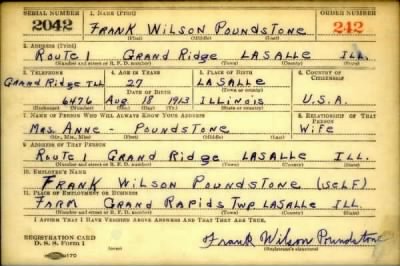 SERIAL NUMBER 1. NAME (Print) ORDER NUMBER
2042 FRANK WILSON POUNDSTONE 242
(First) (Middle) (Last)
2. ADDRESS (Print)
ROUTE 1 GRAND RIDGE LASALLE ILL.
(Number and street or R. F. D. number) (Town) (County) (State)
3. TELEPHONE 4. AGE IN YEARS 5. PLACE OF BIRTH 6. COUNTRY OF CITIZENSHIP
GRAND RIDGE ILL 27 LASALLE
DATE OF BIRTH (Town or county)
6476 Aug 18 1913 ILLINOIS U.S.A.
(Exchange) (Number) (Mo.) (Day) (Yr.) (State or country)
7. NAME OF PERSON WHO WILL ALWAYS KNOW YOUR ADDRESS 8. RELATIONSHIP OF THAT PERSON
MRS. ANNE - POUNDSTONE WIFE
(Mr., Mrs., Miss) (First) (Middle) (Last)
9. ADDRESS OF THAT PERSON
ROUTE 1 GRAND RIDGE LASALLE ILL.
(Number and street or R. F. D. number) (Town) (County) (State)
10. EMPLOYER'S NAME
FRANK WILSON POUNDSTONE (SELF)
11. PLACE OF EMPLOYMENT OR BUSINESS
FARM GRAND RAPIDS TWP LASALLE ILL.
(Number and street or R. F. D. number) (Town) (County) (State)
I AFFIRM THAT I HAVE VERIFIED ABOVE ANSWERS AND THAT THEY ARE TRUE.
REGISTRATION CARD
D. S. S. Form 1 Frank Wilson Poundstone
(Registrant's signature)